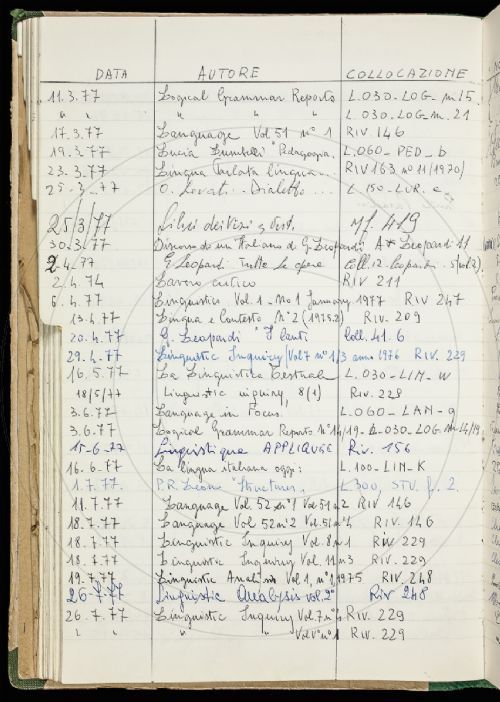 DATA AUTORE COLLOCAZIONE
11.3.77 Logical Grammar Reports L.030-LOG-n.15
" " " " " L.030-LOG-n.21
17.3.77 Language Vol 51 n° 1 RIV. 146
19.3.77 Lucia Lumbelli Pedagogia L.060-PED-b
23.3.77 Lingua Parlata lingua... RIV 163 n° 11 (1970)
25.3.77 O. Lovati.. Dialetto ... L.150-LOR.
25/3/77 Mf. 419
30.3.77 Discorso di un Italiano di G. Leopardi A* Leopardi 11
2.4.77 G. Leopardi Tutte le opere Coll.12-Leopardi
2.4.74 Lavoro critico RIV 211
6.4.77 Linguistics Vol. 1 - No 1 January 1977 RIV 247
13.4.77 Lingua e Contesto N° 2 (1975.2) Riv. 209
20.4.77 G. Leopardi "I Canti Coll. 41.6
29.4.77 Linguistic Inquiry (Vol 7 n° 1/3 anno 1976 RIV. 229
16.5.77 La Linguistica Testuale L.030-LIN-w
18/5/77 Linguistic inquiry, 8(1) Riv. 229
3.6.77 Language in Focus. L.060-LAN-g
3.6.77 Logical Grammar Reports N° 14/19 L.030-LOG n-14/19
15-6-77 Linguistique APPLIQUÉE Riv. 156
16.6.77 La lingua italiana oggi: L.100-LIN-K
1.7.77. P.R. Leone "Structures. L 300, STU.
11.7.77 Language Vol. 52 n° 1 Vol 51 n 2 RIV 146
18.7.77 Language Vol. 52 n° 2 Vol. 51 n° 4 RIV. 146
18.7.77 Linguistic Inquiry Vol. 8 n 1 RIV 229
18.7.77 Linguistic Inquiry Vol. 11 n 3 RIV. 229
19.7.77 Linguistic Analisis Vol 1, n° 1, 1975 RIV. 248
26-7-77 Linguistic Analysis vol. 2° Riv 248
26.7.77 Linguistic Inquiry Vol. 7 n° RIV. 229
" " " Vol V n° 1 RIV. 229